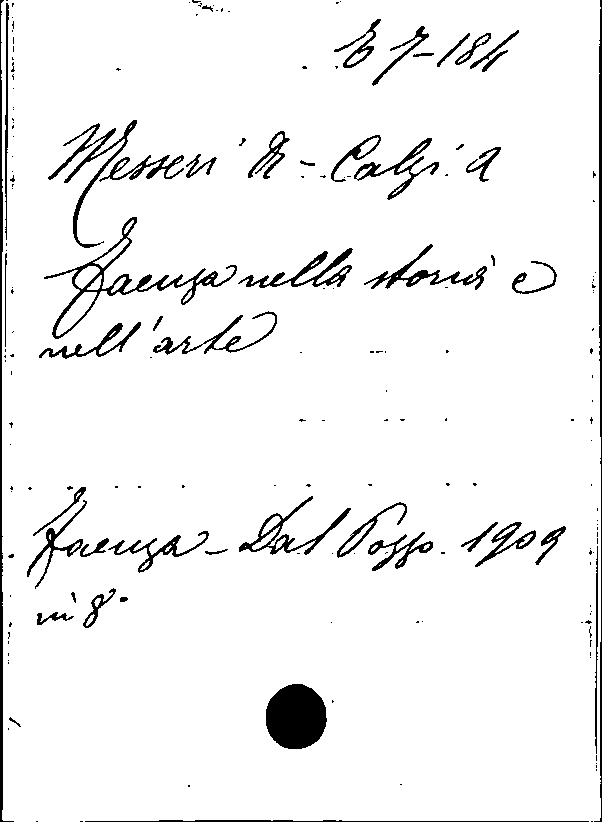 E 7-184
Messeri A - Calzi A
Faenza nella storia e
nell'arte
Faenza - Dal Pozzo. 1909
in 8°